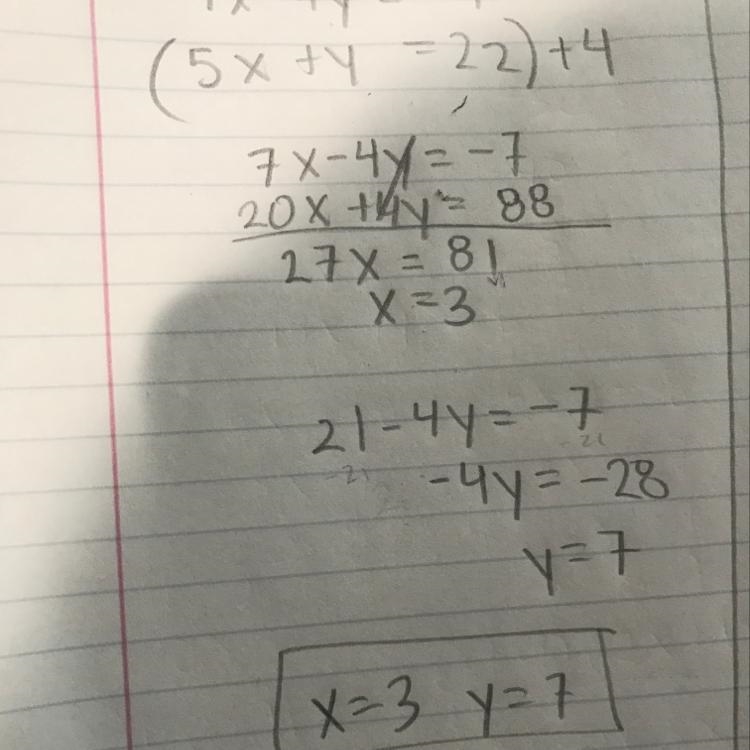 (5x + y = 22) + 4
7x - 4y = -7
20x + 4y = 88
27x = 81
x = 3
21 - 4y = -7
-21 -21
-4y = -28
y = 7
x = 3 y = 7